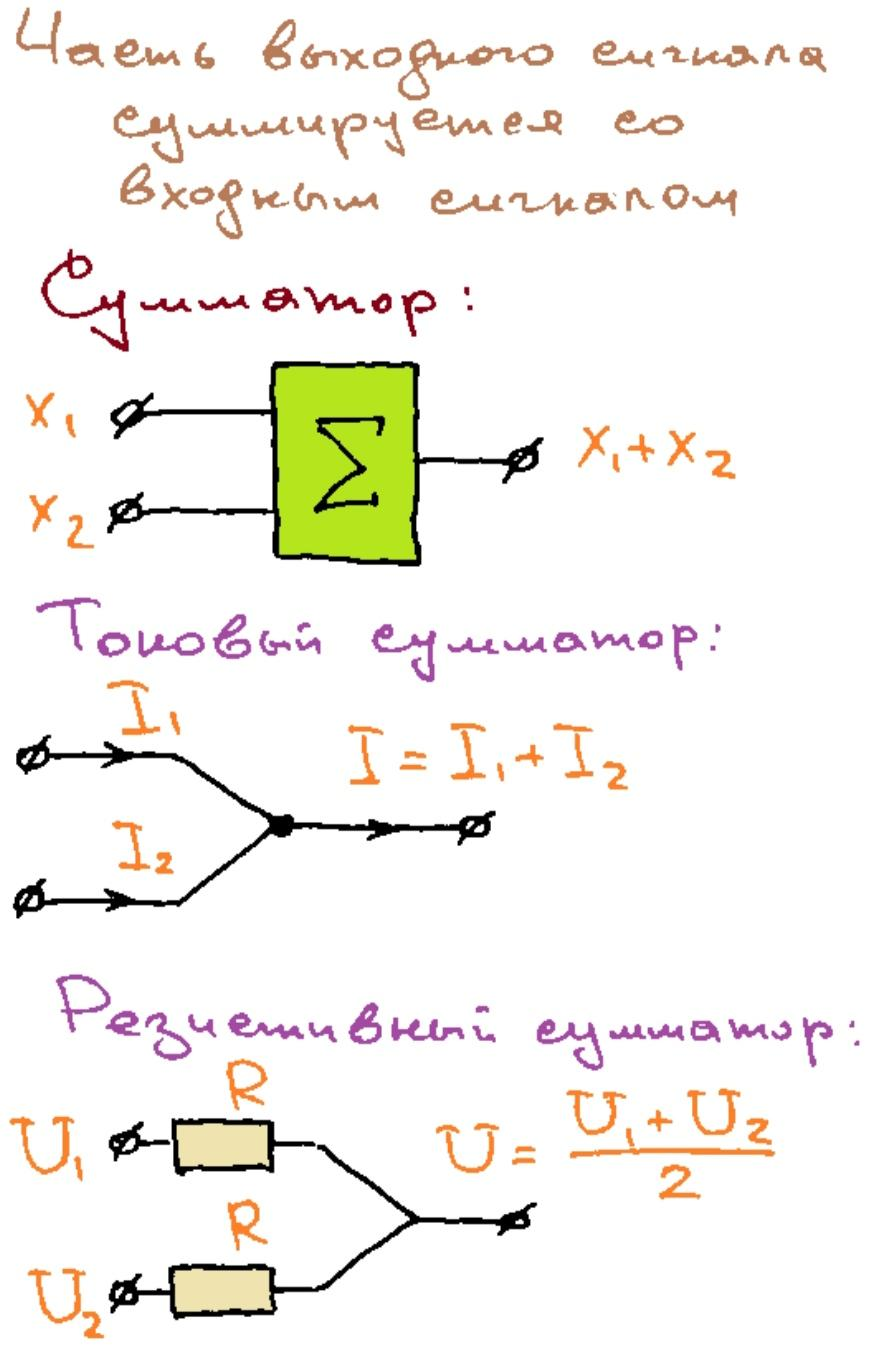 Часть выходного сигнала
суммируется со
входным сигналом
Сумматор:
x₁
Σ
x₁+x₂
x₂
Токовый сумматор:
I₁
I = I₁ + I₂
I₂
Резистивный сумматор:
R
U₁
U = (U₁ + U₂)/2
R
U₂